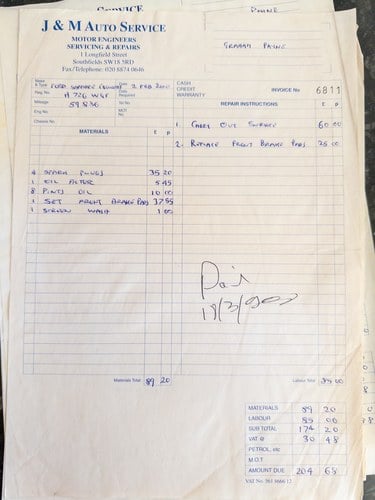 J & M AUTO SERVICE
MOTOR ENGINEERS
SERVICING & REPAIRS
1 Longfield Street
Southfields SW18 5RD
Fax/Telephone: 020 8874 0646
GRAHAM PAYNE
Make & Type FORD Date Required 2 FEB
Reg. No.
Mileage 59836 Tel No
Eng No. MOT
Chassis No.
CASH
CREDIT
WARRANTY
INVOICE No 6811
REPAIR INSTRUCTIONS £ P
1 CARRY OUT SERVICE 60 00
2. REPLACE FRONT BRAKE PADS 25 00
MATERIALS £ P
4 SPARK PLUGS 35 20
1 OIL FILTER 5 45
8 PINTS OIL 10 00
1 SET FRONT BRAKE PADS 37 55
1 SCREEN WASH 1 00
Paid
Materials Total 89 20
Labour Total 85 00
MATERIALS 89 20
LABOUR 85 00
SUB TOTAL 174 20
VAT @ 30 48
PETROL, etc
M.O.T
AMOUNT DUE 204 68
VAT No. 561 8666 12